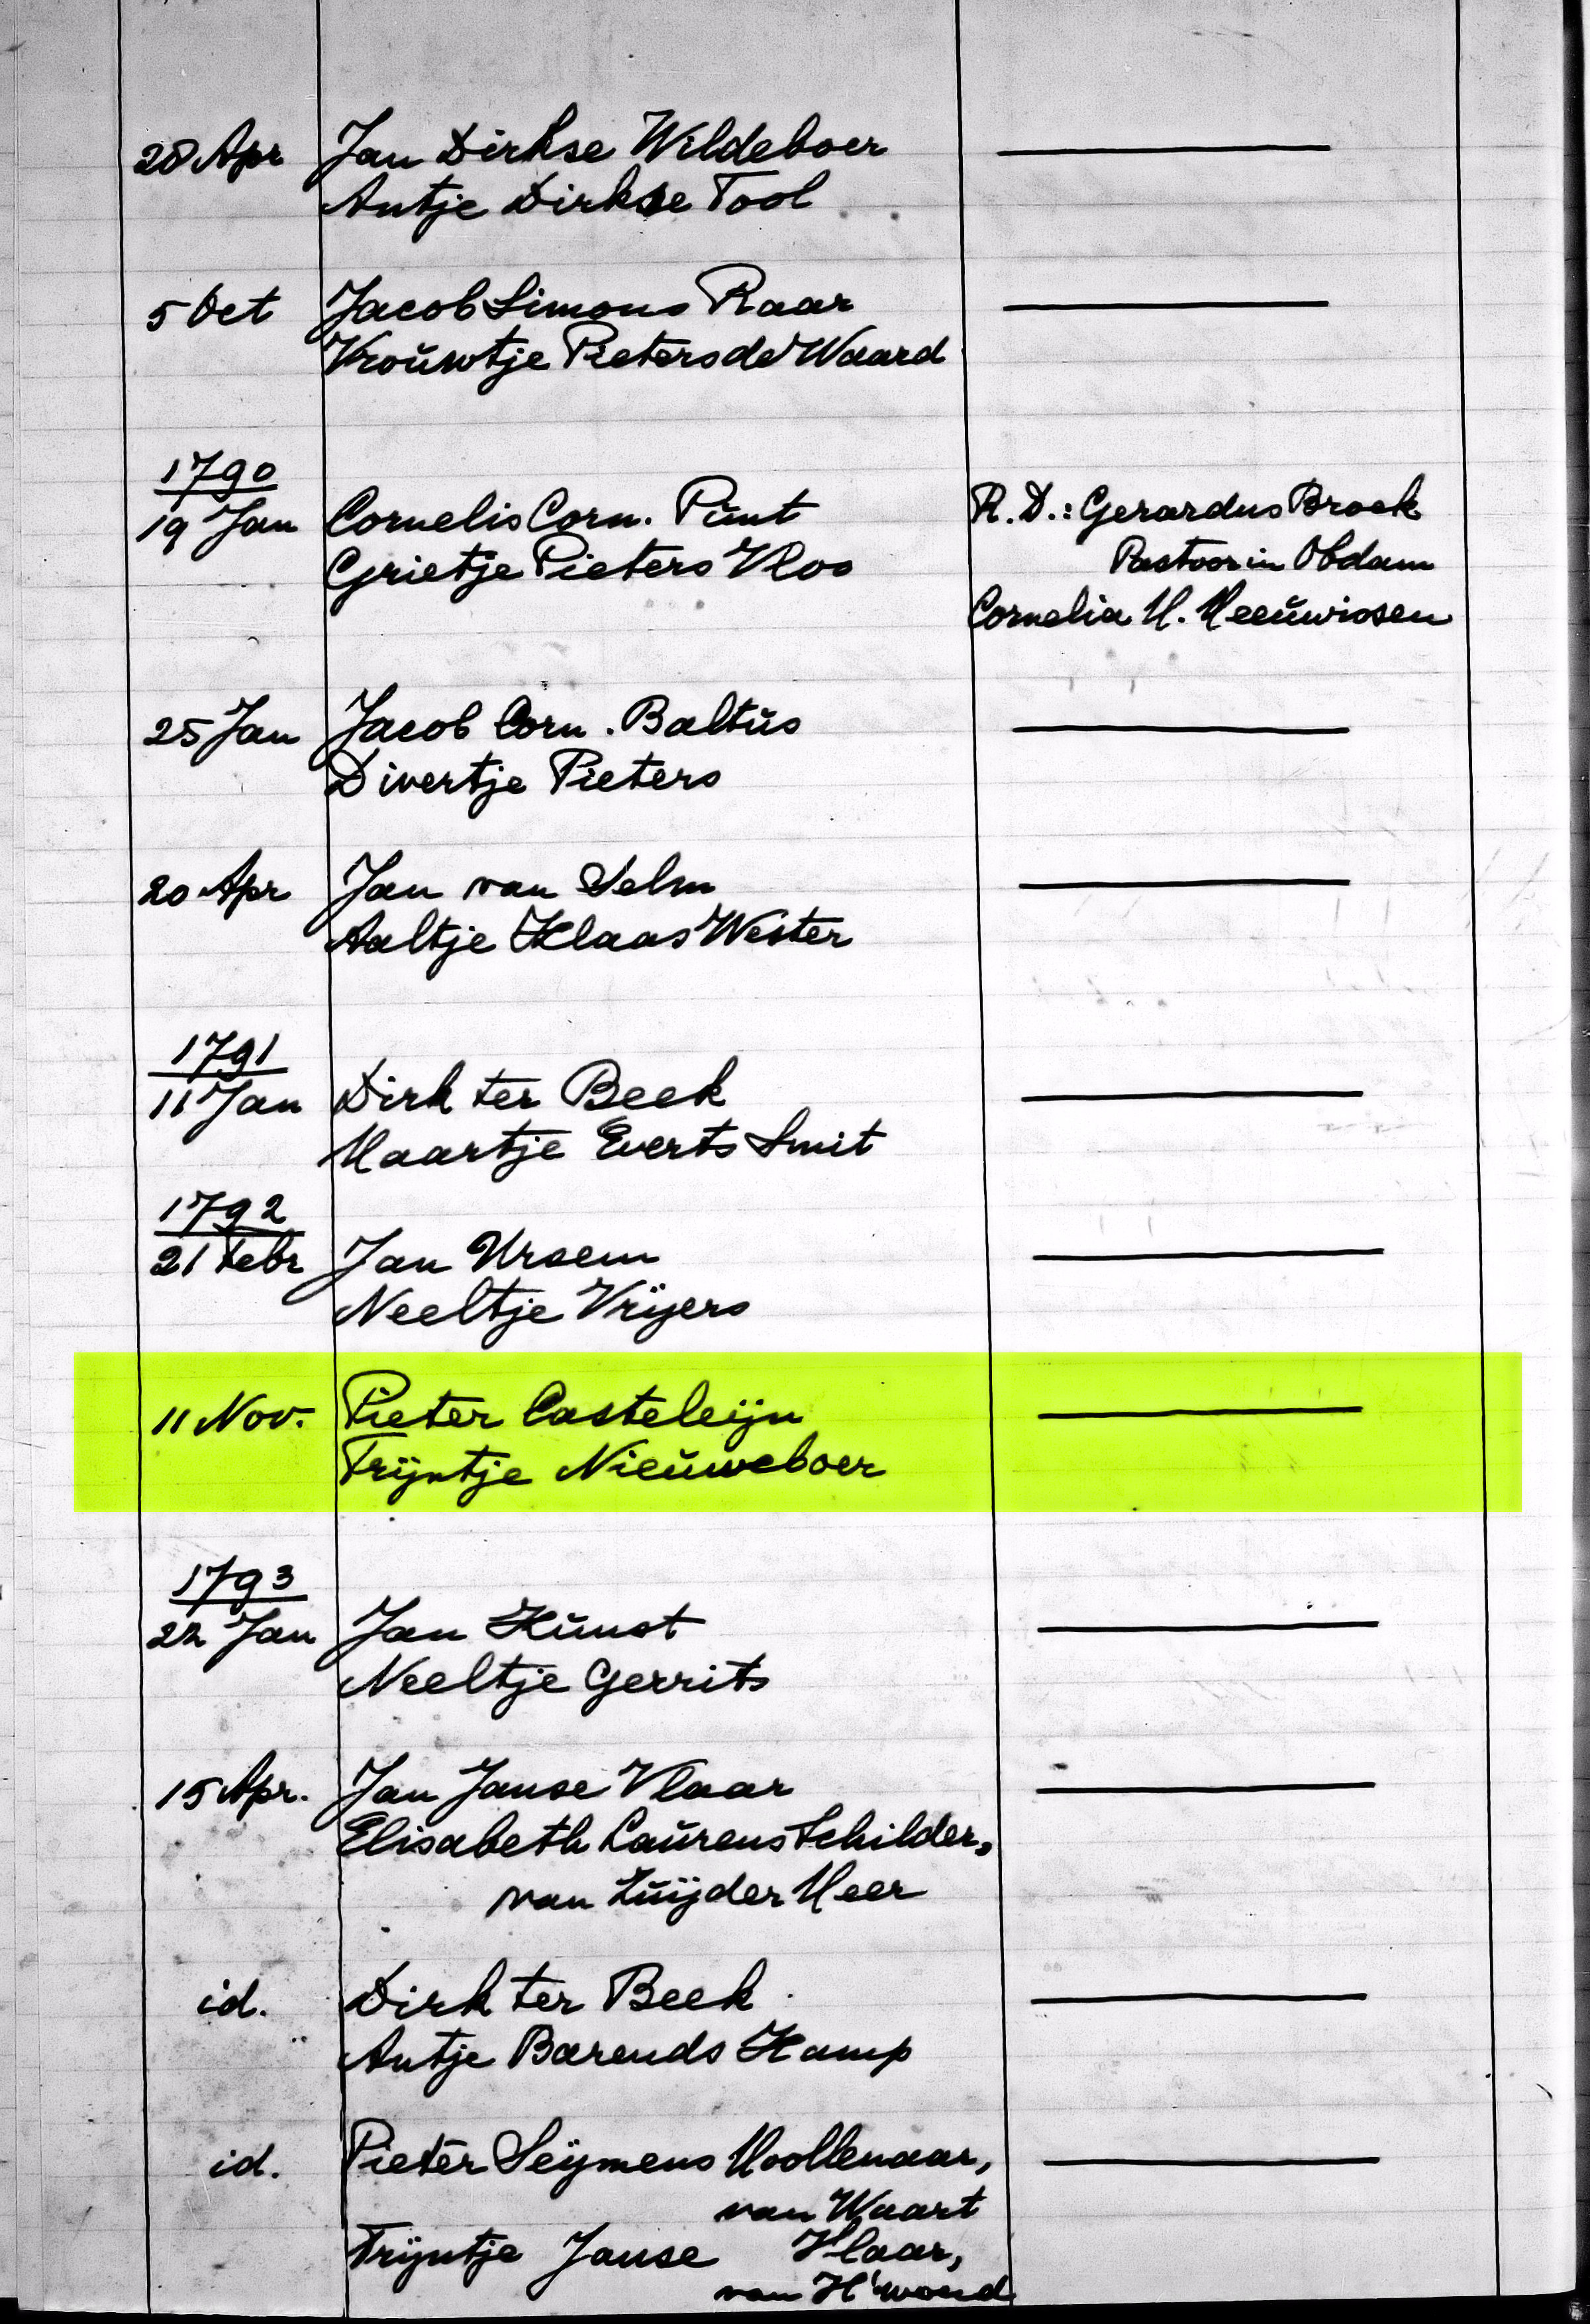 28 Apr Jan Dirkse Wildeboer
Antje Dirkse Tool
5 Oct Jacob Simons Raar
Vrouwtje Pieters de Waard
1790
19 Jan Cornelis Corn. Punt R.D.: Gerardus Broek
Grietje Pieters Vloo Pastoor in Obdam
Cornelia M. Meeuwissen
25 Jan Jacob Corn. Baltus
Divertje Pieters
20 Apr Jan van Selm
Aaltje Klaas Wester
1791
11 Jan Dirk ter Beek
Maartje Everts Smit
1792
21 Febr Jan Ursem
Neeltje Vrijers
11 Nov. Pieter Casteleijn
Trijntje Nieuweboer
1793
22 Jan Jan Kunst
Neeltje Gerrits
15 Apr. Jan Janse Vlaar
Elisabeth Laurens Schilder,
van Zuijdermeer
id. Dirk ter Beek
Antje Barends Kamp
id. Pieter Seijmens Moollenaar,
van Waart
Trijntje Janse Vlaar,
van H'woud